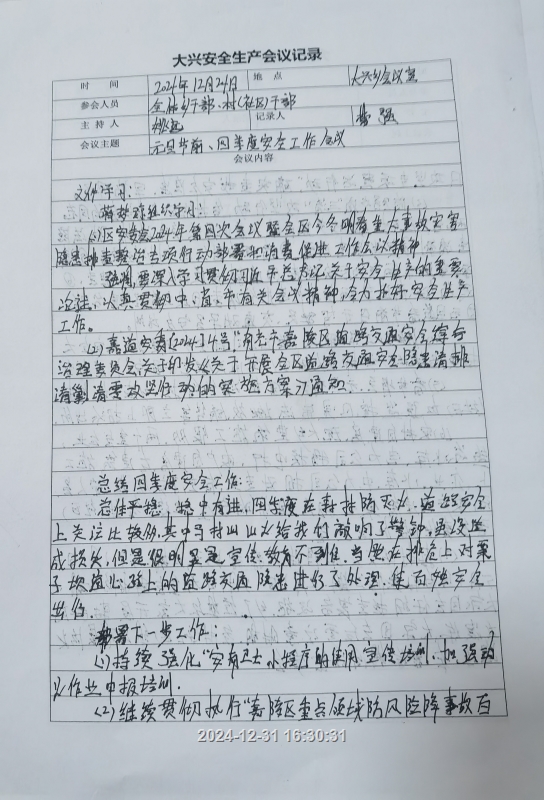 大兴安全生产会议记录
时 间 2024年12月24日 地 点 大兴乡会议室
参会人员 全体乡干部、村(社区)干部
主 持 人 记录人 强
会议主题 元旦节前、四季度安全工作会议
会议内容
文件学习:
组织学习:
(1)区安委会2024年第四次会议暨全区今冬明春重大事故灾害
隐患排查整治专项行动部署和消费促进工作会议精神
强调,要深入学习贯彻习近平总书记关于安全生产的重要
论述,认真贯彻中、省、市有关会议精神,全力抓好安全生产
工作。
(2)嘉道安委[2024]4号"南充市嘉陵区道路交通安全综合
治理委员会关于印发《关于开展全区道路交通安全隐患清排
清剿清零攻坚行动的实施方案》通知
总结四季度安全工作:
总体平稳,稳中有进,四季度在森排防灭火、道路安全
上关注比较多,其中马村山山火给我们敲响了警钟,虽没造
成损失,但是很明显是宣传教育不到位,当然在排查上对栗
子坝道路上的道路交通隐患进行了处理,使百姓安全
出行。
部署下一步工作:
(1)持续强化"安有卫士"小程序的使用宣传培训,加强动
火作业申报培训.
(2)继续贯彻执行"嘉陵区重点领域防风险降事故百
2024-12-31 16:30:31